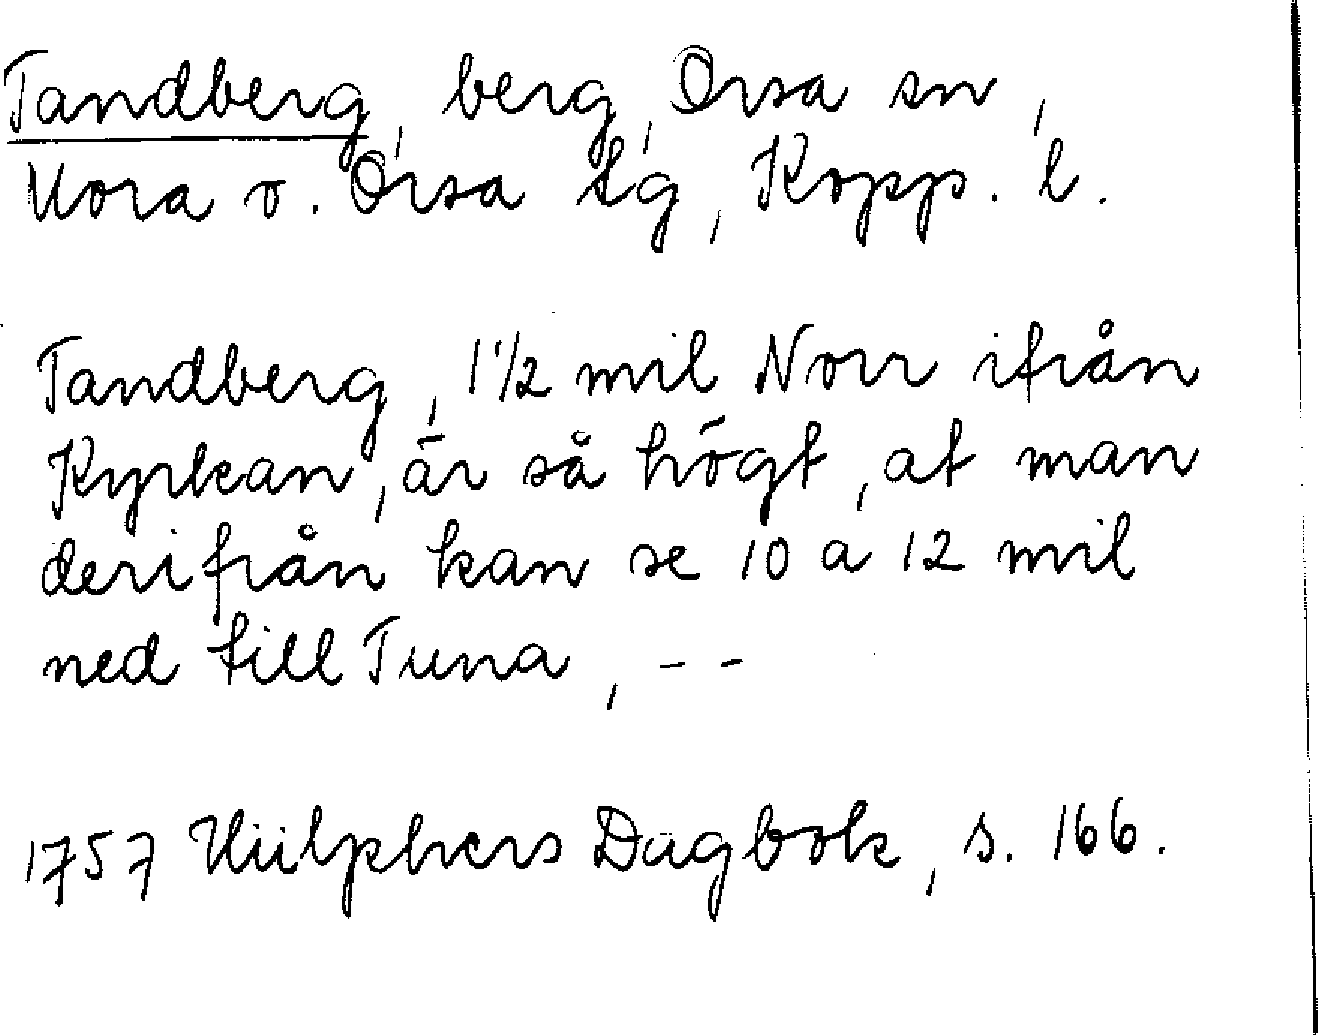 Tandberg, berg, Orsa sn,
Mora o. Orsa tg, Kopp. l.
Tandberg, 1 1/2 mil Norr ifrån
Kyrkan, är så högt, at man
derifrån kan se 10 a 12 mil
ned till Tuna, - -
1757 Hülphers Dagbok, s. 166.